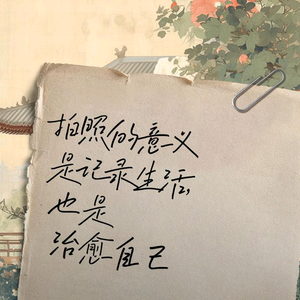 拍照的意义
是记录生活,
也是
治愈自己